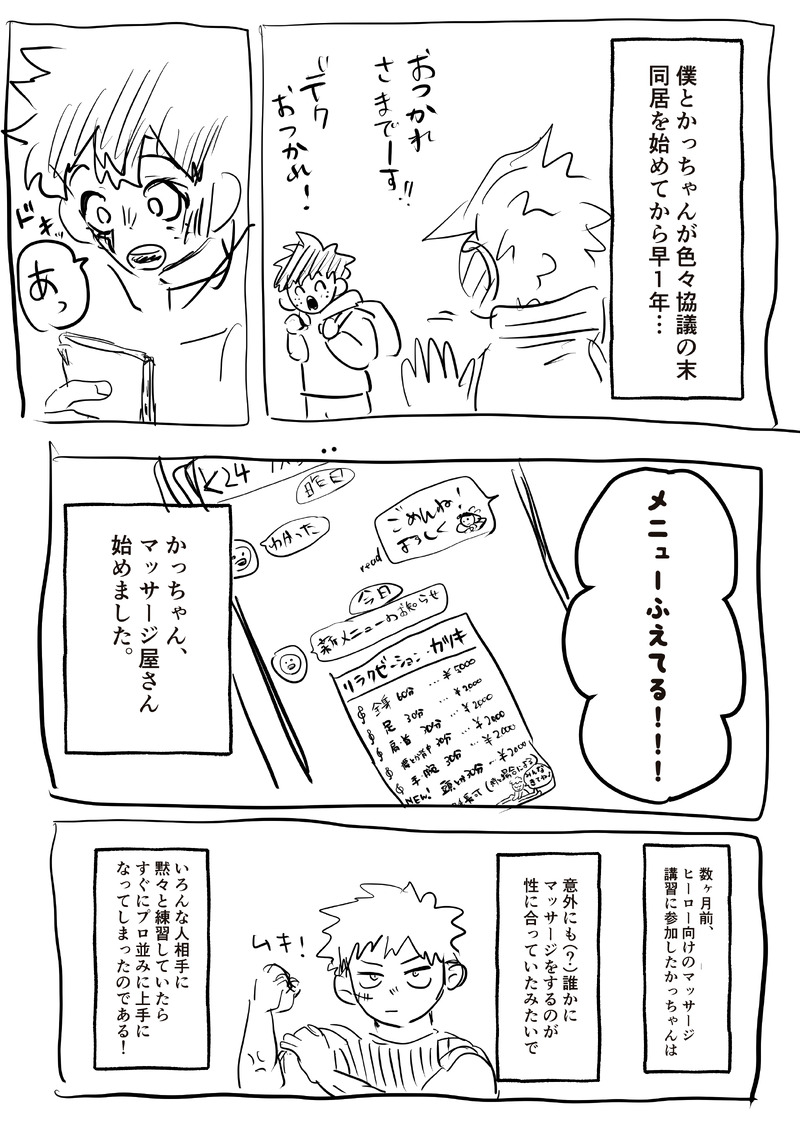 僕とかっちゃんが色々協議の末
同居を始めてから早1年…
おつかれ
さまでーす!!
デク
おつかれ!
ドキ
あっ
メニューふえてる!!!
K24
昨日
ごめんね!
よろしく
read
わかった
今日
新メニューのお知らせ
リラクゼーション カツキ
全身 60分 … ¥5000
足 30分 … ¥2000
肩首 30分 … ¥2000
30分 … ¥2000
手腕 30分 … ¥2000
NEW!
かっちゃん、
マッサージ屋さん
始めました。
数ヶ月前、
ヒーロー向けのマッサージ
講習に参加したかっちゃんは
意外にも(?)誰かに
マッサージをするのが
性に合っていたみたいで
ムキ!
いろんな人相手に
黙々と練習していたら
すぐにプロ並みに上手に
なってしまったのである!